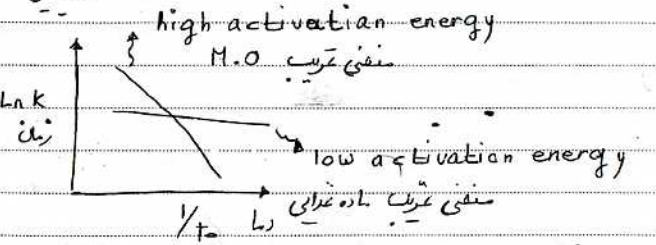 high activation energy
منحنی تخریب M.O
Ln k
زمان
low activation energy
منحنی تخریب ماده غذایی
1/T0 دما